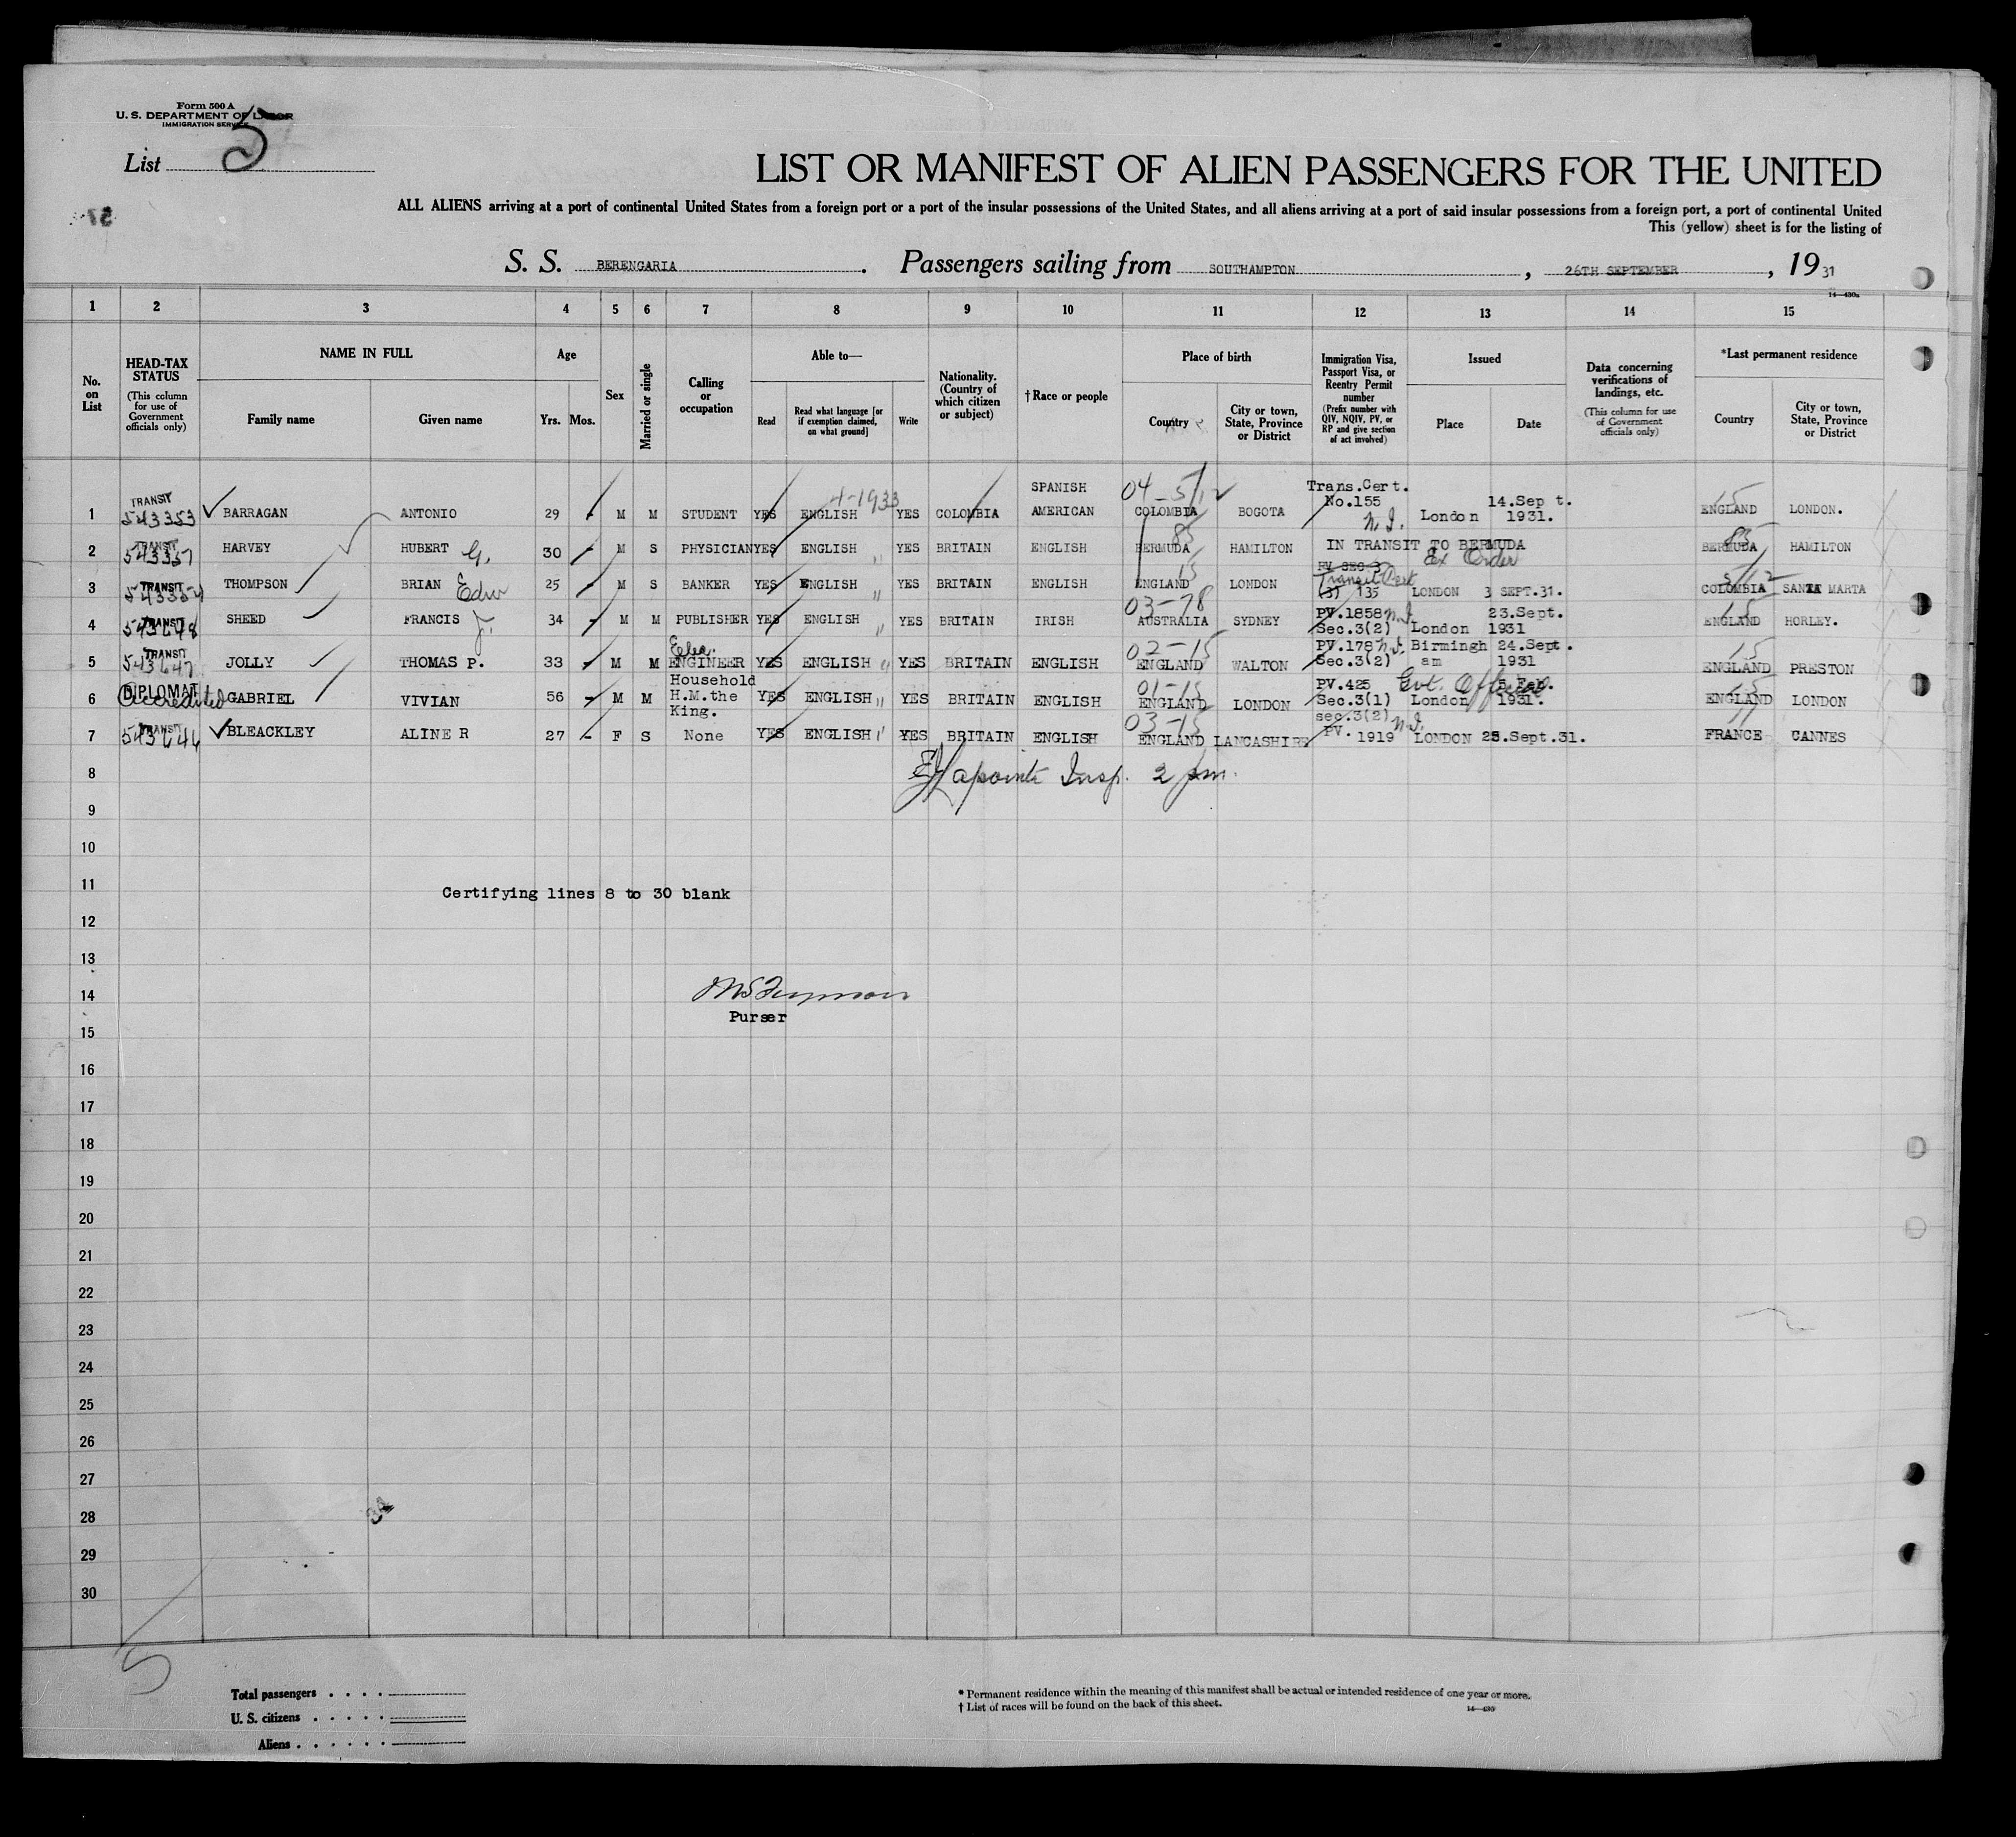 Form 500 A
U. S. DEPARTMENT OF LABOR
IMMIGRATION SERVICE
List 5
LIST OR MANIFEST OF ALIEN PASSENGERS FOR THE UNITED
ALL ALIENS arriving at a port of continental United States from a foreign port or a port of the insular possessions of the United States, and all aliens arriving at a port of said insular possessions from a foreign port, a port of continental United
This (yellow) sheet is for the listing of
S. S. BERENGARIA. Passengers sailing from SOUTHAMPTON, 26TH SEPTEMBER, 1931
14—430a
1 2 3 4 5 6 7 8 9 10 11 12 13 14 15
No. on List
HEAD-TAX STATUS
(This column for use of Government officials only)
NAME IN FULL
Family name
Given name
Age
Yrs. Mos.
Sex
Married or single
Calling or occupation
Able to—
Read
Read what language [or if exemption claimed, on what ground]
Write
Nationality. (Country of which citizen or subject)
† Race or people
Place of birth
Country
City or town, State, Province or District
Immigration Visa, Passport Visa, or Reentry Permit number
(Prefix number with QIV, NQIV, PV, or RP and give section of act involved)
Issued
Place
Date
Data concerning verifications of landings, etc.
(This column for use of Government officials only)
*Last permanent residence
Country
City or town, State, Province or District
1 TRANSIT 543353 BARRAGAN ANTONIO 29 - M M STUDENT YES ENGLISH 4-1933 YES COLOMBIA SPANISH AMERICAN 04-5/12 COLOMBIA BOGOTA Trans.Cert. No.155 N.I. London 14.Sep t. 1931. 15 ENGLAND LONDON.
2 TRANSIT 543357 HARVEY HUBERT G. 30 - M S PHYSICIAN YES ENGLISH " YES BRITAIN ENGLISH 85 BERMUDA HAMILTON IN TRANSIT TO BERMUDA Ex Order 85 BERMUDA HAMILTON
3 TRANSIT THOMPSON BRIAN Edw 25 - M S BANKER YES ENGLISH " YES BRITAIN ENGLISH 15 ENGLAND LONDON PV SEC 3 Transit Cert (3) 135 LONDON 3 SEPT.31. 5/12 COLOMBIA SANTA MARTA
4 TRANSIT 543648 SHEED FRANCIS J. 34 - M M PUBLISHER YES ENGLISH " YES BRITAIN IRISH 03-78 AUSTRALIA SYDNEY PV.1858 N.I. Sec.3(2) London 23.Sept. 1931 15 ENGLAND HORLEY.
5 TRANSIT 543647 JOLLY THOMAS P. 33 - M M Elec. ENGINEER YES ENGLISH " YES BRITAIN ENGLISH 02-15 ENGLAND WALTON PV.178 N.I. Sec.3(2) Birmingh am 24.Sept. 1931 15 ENGLAND PRESTON
6 DIPLOMAT Accredited GABRIEL VIVIAN 56 - M M Household H.M.the King. YES ENGLISH " YES BRITAIN ENGLISH 01-15 ENGLAND LONDON PV.425 Sec.3(1) Gvt. Official London 5 Feb. 1931. 15 ENGLAND LONDON
7 TRANSIT 543646 BLEACKLEY ALINE R 27 - F S None YES ENGLISH " YES BRITAIN ENGLISH 03-15 ENGLAND LANCASHIRE sec.3(2) N.I. PV. 1919 LONDON 25.Sept.31. 11 FRANCE CANNES
8 Lapointe Insp. 2 pm.
9
10
11 Certifying lines 8 to 30 blank
12
13
14
Purser
15
16
17
18
19
20
21
22
23
24
25
26
27
28
29
30
5
Total passengers
U. S. citizens
Aliens
* Permanent residence within the meaning of this manifest shall be actual or intended residence of one year or more.
† List of races will be found on the back of this sheet.
14—430